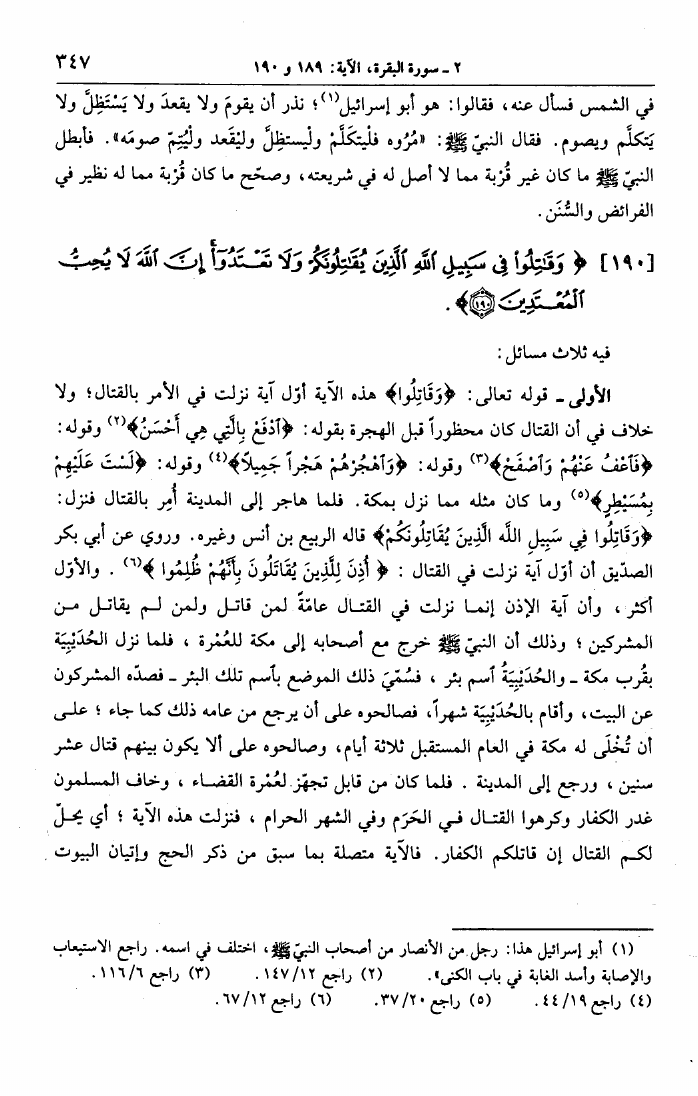 ٢ ـ سورة البقرة، الآية: ١٨٩ و ١٩٠
٣٤٧
في الشمس فسأل عنه، فقالوا: هو أبو إسرائيل(١)؛ نذر أن يقومَ ولا يقعدَ ولا يَسْتَظِلَّ ولا
يَتكلَّم ويصوم. فقال النبيّ ﷺ: «مُرُوه فلْيتكَلَّمْ ولْيستظِلَّ وليْقعد ولْيُتِمّ صومَه». فأبطل
النبيّ ﷺ ما كان غير قُرْبة مما لا أصل له في شريعته، وصحّح ما كان قُرْبة مما له نظير في
الفرائض والسُّنَن.
[١٩٠] ﴿ وَقَٰتِلُوا۟ فِى سَبِيلِ ٱللَّهِ ٱلَّذِينَ يُقَٰتِلُونَكُمْ وَلَا تَعْـتَدُوٓا۟ إِنَّ ٱللَّهَ لَا يُحِبُّ
ٱلْمُعْـتَدِينَ ١٩٠﴾.
فيه ثلاث مسائل:
الأولى ـ قوله تعالى: ﴿وَقَاتِلُوا﴾ هذه الآية أوّل آية نزلت في الأمر بالقتال؛ ولا
خلاف في أن القتال كان محظوراً قبل الهجرة بقوله: ﴿ٱدْفَعْ بِالَّتِي هِي أَحْسَنُ﴾(٢) وقوله:
﴿فَٱعْفُ عَنْهُمْ وَٱصْفَحْ﴾(٣) وقوله: ﴿وَٱهْجُرْهُمْ هَجْراً جَمِيلاً﴾(٤) وقوله: ﴿لَسْتَ عَلَيْهِمْ
بِمُسَيْطِرٍ﴾(٥) وما كان مثله مما نزل بمكة. فلما هاجر إلى المدينة أُمِر بالقتال فنزل:
﴿وَقَاتِلُوا فِي سَبِيلِ اللَّه الَّذِينَ يُقَاتِلُونَكُمْ﴾ قاله الربيع بن أنس وغيره. وروي عن أبي بكر
الصدّيق أن أوّل آية نزلت في القتال : ﴿ أُذِنَ لِلَّذِينَ يُقَاتَلُونَ بِأَنَّهُمْ ظُلِمُوا ﴾(٦) . والأوّل
أكثر ، وأن آية الإذن إنمـا نزلت في القتـال عامّةً لمن قاتـل ولمن لـم يقاتـل مـن
المشركين ؛ وذلك أن النبيّ ﷺ خرج مع أصحابه إلى مكة للعُمْرة ، فلما نزل الحُدَيْبِيَة
بقُرب مكة ـ والحُدَيْبِيَةُ ٱسم بئر ، فسُمِّيَ ذلك الموضع بٱسم تلك البئر ـ فصدّه المشركون
عن البيت، وأقام بالحُدَيْبِيَة شهراً، فصالحوه على أن يرجع من عامه ذلك كما جاء ؛ علـى
أن تُخْلَى له مكة في العام المستقبل ثلاثة أيام، وصالحوه على ألا يكون بينهم قتال عشر
سنين ، ورجع إلى المدينة . فلما كان من قابل تجهّز لعُمْرة القضـاء ، وخاف المسلمون
غدر الكفار وكرهوا القتـال فـي الحَرَم وفي الشهر الحرام ، فنزلت هذه الآية ؛ أي يحـلّ
لكـم القتال إن قاتلكم الكفار. فالآية متصلة بما سبق من ذكر الحج وإتيان البيوت
(١) أبو إسرائيل هذا: رجل من الأنصار من أصحاب النبيّ ﷺ، اختلف في اسمه. راجع الاستيعاب
والإصابة وأسد الغابة في باب الكنى». (٢) راجع ١٤٧/١٢. (٣) راجع ١١٦/٦.
(٤) راجع ٤٤/١٩. (٥) راجع ٣٧/٢٠. (٦) راجع ٦٧/١٢.